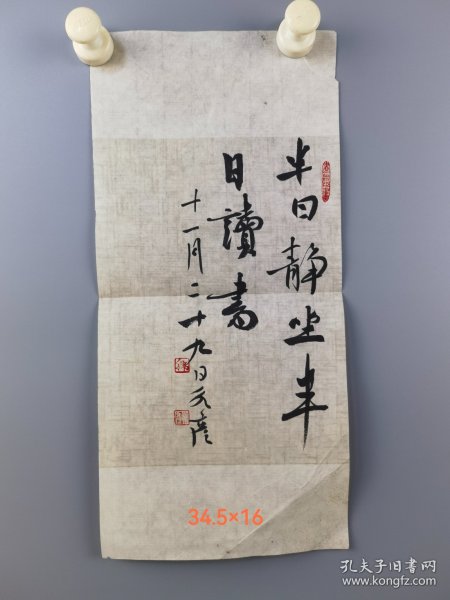 半日静坐半
日讀書
十一月二十九日元彦
34.5×16
孔夫子旧书网
www.kongfz.com